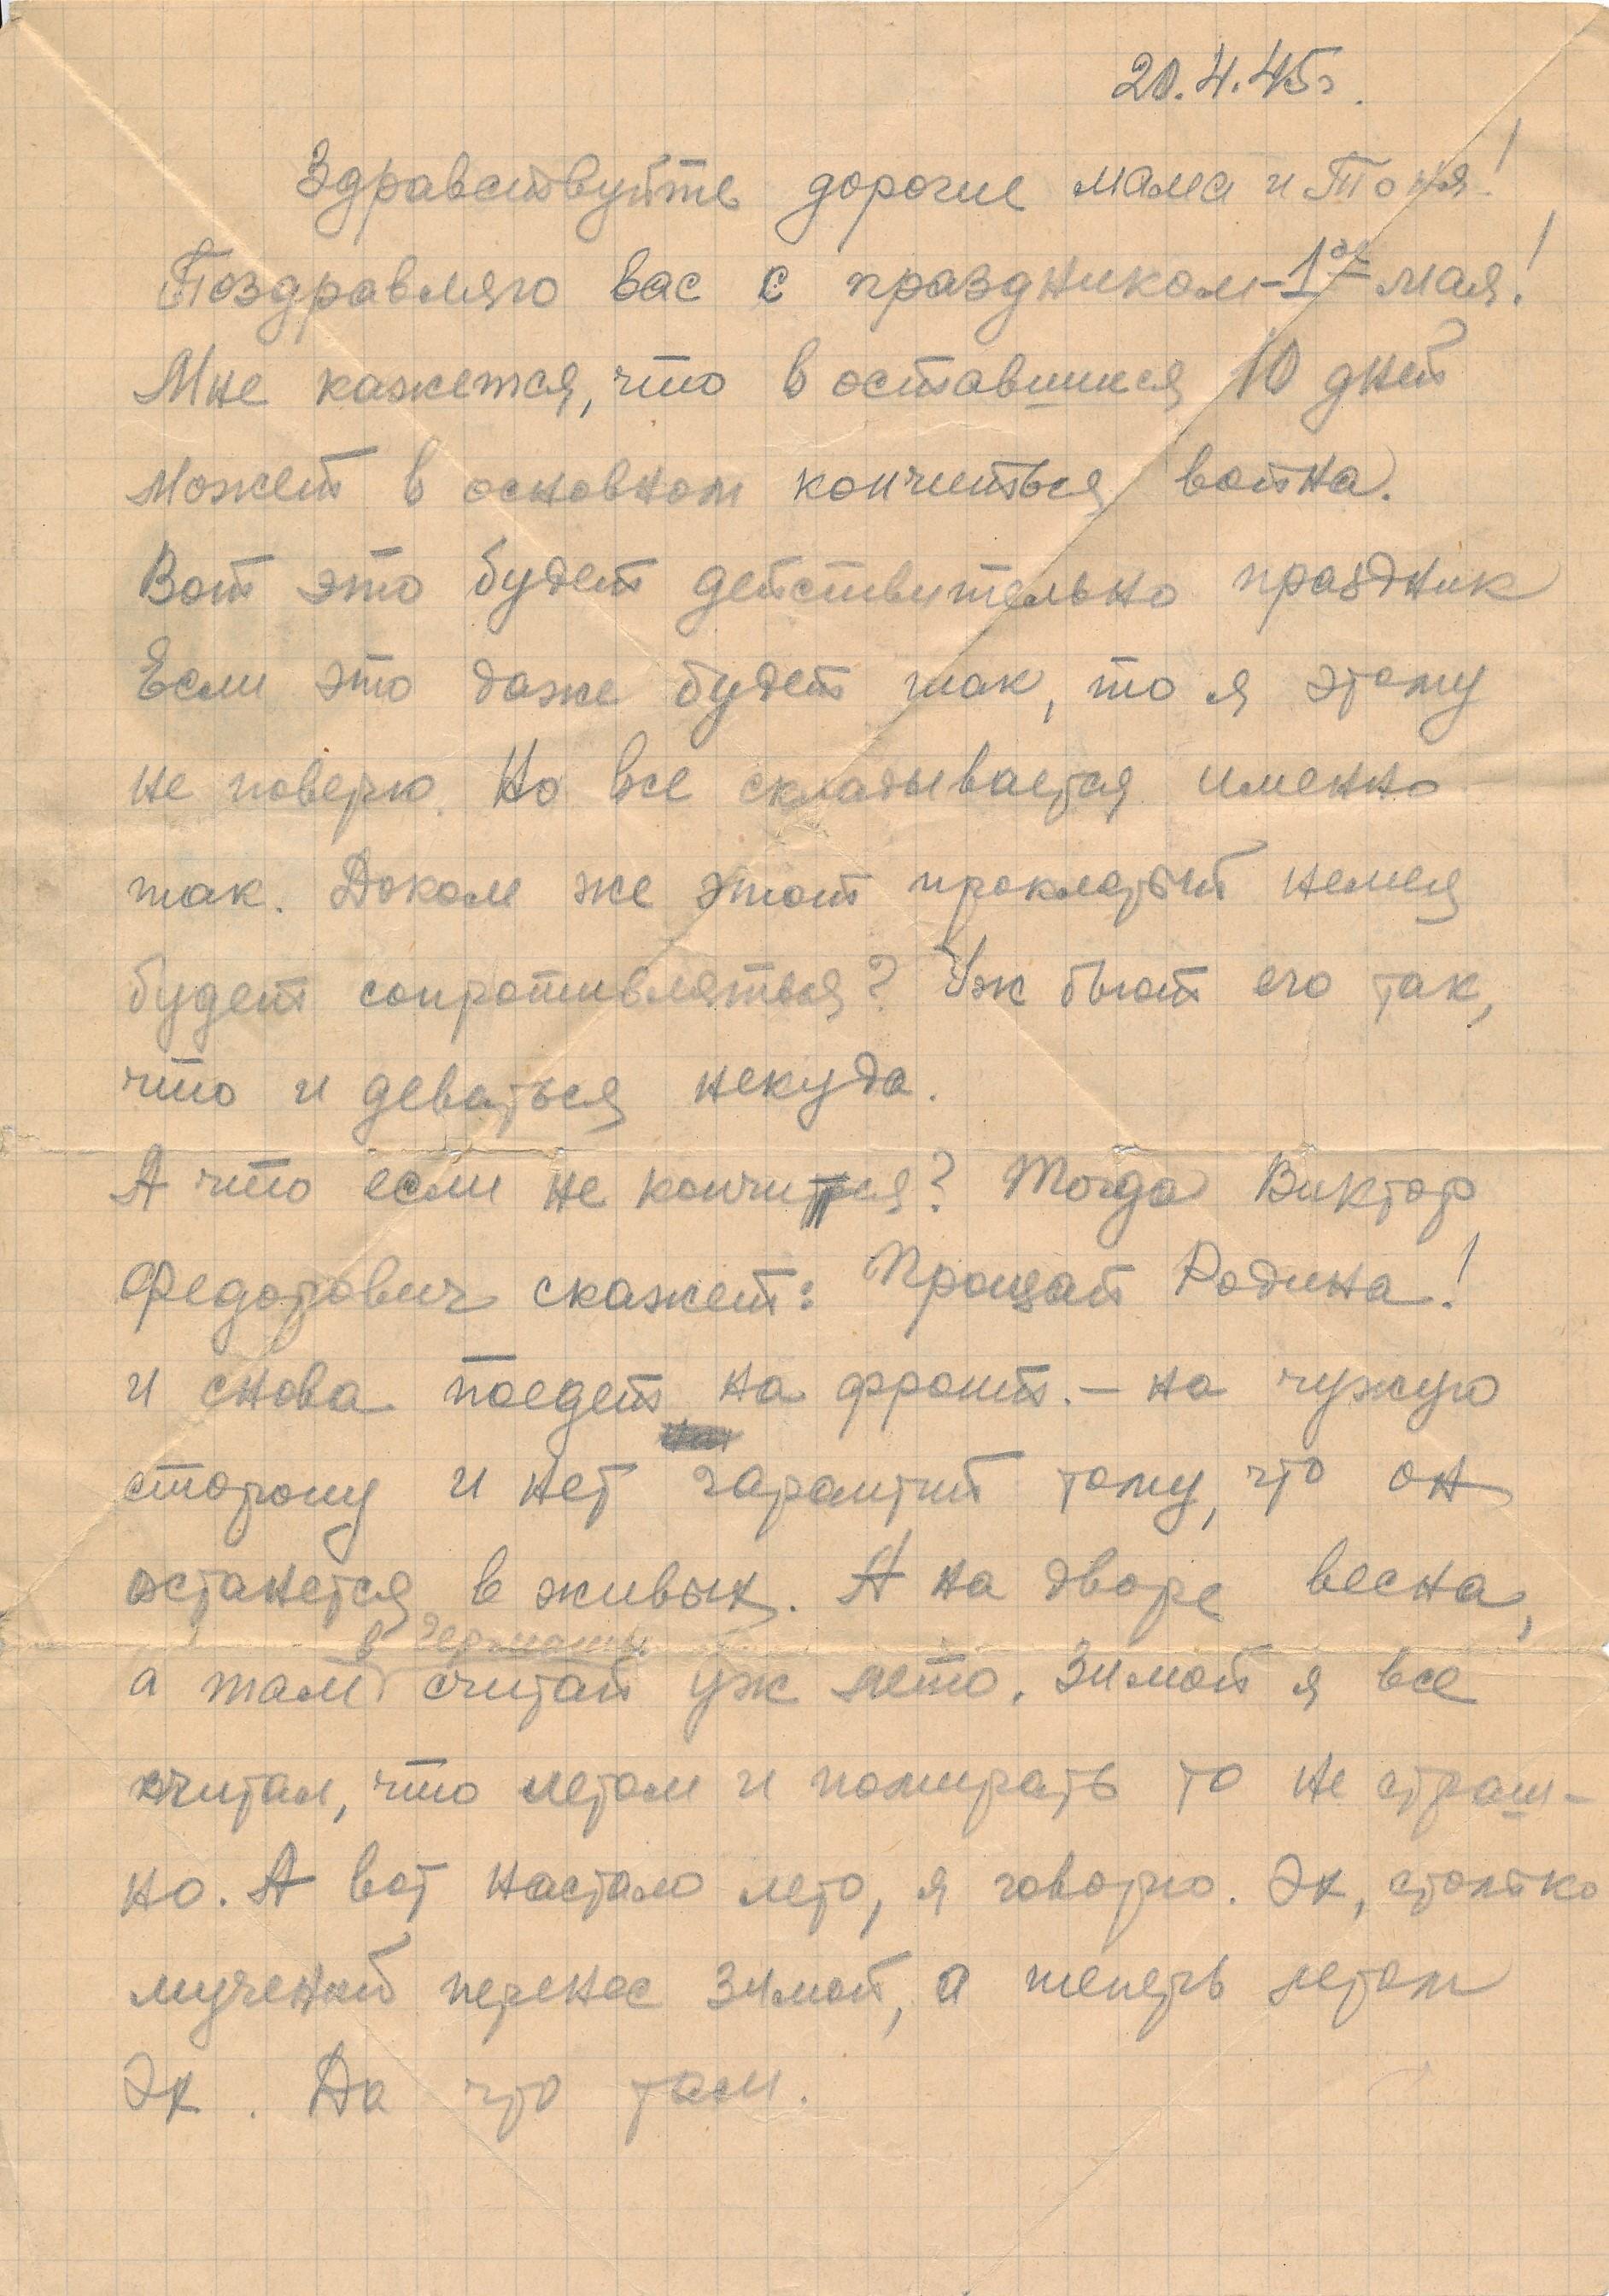 20.4.45г.
Здравствуйте дорогие мама и Тоня!
Поздравляю вас с праздником - 1ое мая!
Мне кажется, что в оставшиеся 10 дней
может в основном кончиться война.
Вот это будет действительно праздник
Если это даже будет так, то я этому
не поверю. Но все складывается именно
так. Доколе же этот проклятый немец
будет сопротивляться? Уж бьют его так,
что и деваться некуда.
А что если не кончится? Тогда Виктор
Федорович скажет: Прощай Родина!
и снова поедет на фронт. – на чужую
сторону и нет гарантий тому, что он
останется в живых. А на дворе весна,
в Германии
а там считай уж лето. Зимой я все
считал, что летом и помирать то не страш-
но. А вот настало лето, я говорю. Эх, столько
мучений перенес зимой, а теперь летом
Эх. Да что там.